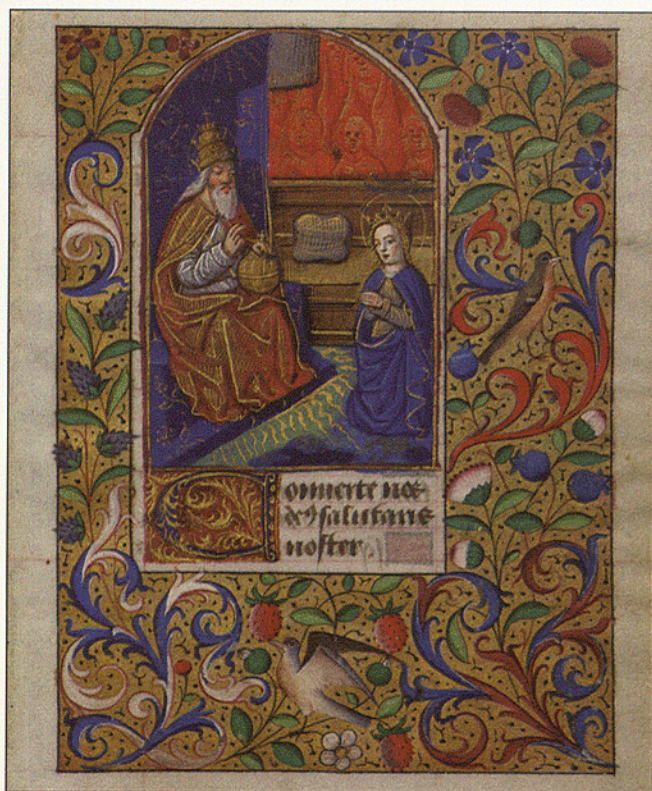 Conuerte nos
deꝰ salutaris
noster.